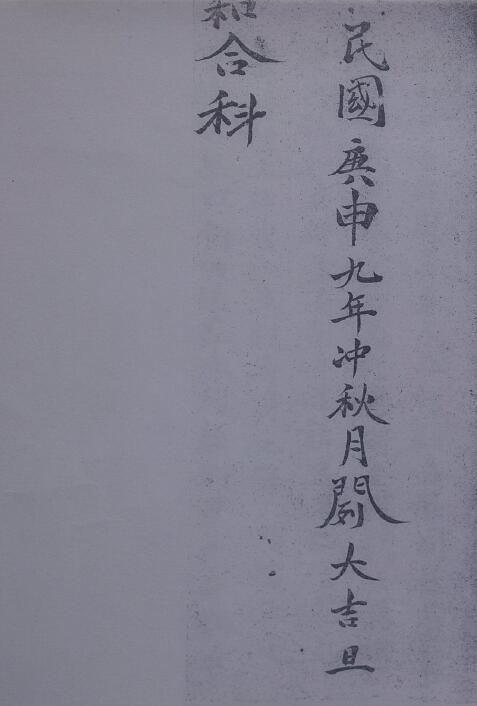 民國庚申九年冲秋月闕大吉旦
和合科